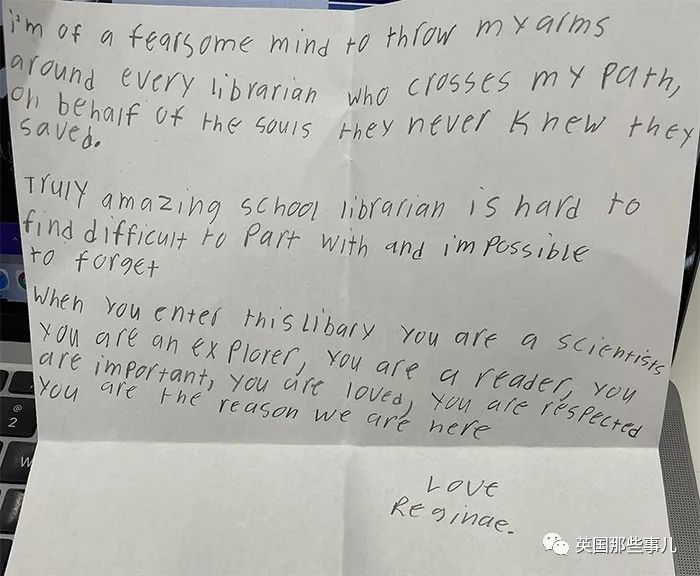 i'm of a fearsome mind to throw my arms
around every librarian who crosses my path,
on behalf of the souls they never knew they
saved.
Truly amazing school librarian is hard to
find difficult to part with and impossible
to forget
When you enter this libary you are a scientists
you are an explorer, you are a reader, you
are important, you are loved, you are respected
you are the reason we are here
Love
Reginae.
@
2
W
英国那些事儿